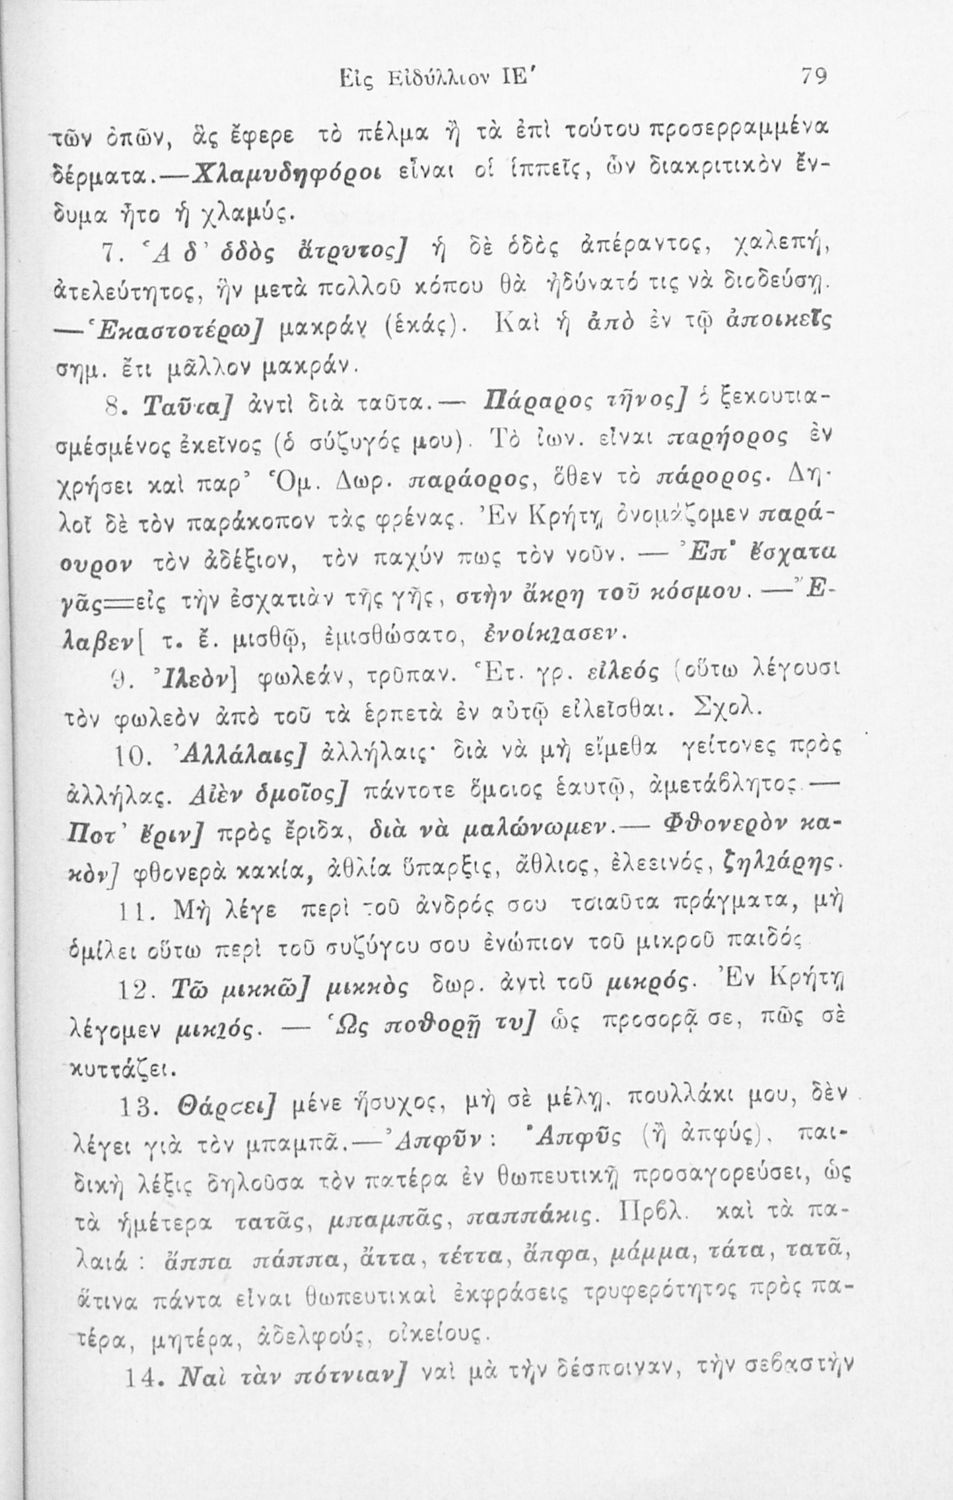 Εἰς Εἰδύλλιον ΙΕ′ 79
τῶν ὀπῶν, ἃς ἔφερε τὸ πέλμα ἢ τὰ ἐπὶ τούτου προσερραμμένα
δέρματα.—Χλαμυδηφόροι εἶναι οἱ ἱππεῖς, ὧν διακριτικὸν ἔν-
δυμα ἦτο ἡ χλαμύς.
7. Ἁ δ' ὁδὸς ἄτρυτος] ἡ δὲ ὁδὸς ἀπέραντος, χαλεπή,
ἀτελεύτητος, ἣν μετὰ πολλοῦ κόπου θὰ ἠδύνατό τις νὰ διοδεύσῃ.
—Ἑκαστοτέρω] μακράν (ἑκάς). Καὶ ἡ ἀπὸ ἐν τῷ ἀποικεῖς
σημ. ἔτι μᾶλλον μακράν.
8. Ταῦτα] ἀντὶ διὰ ταῦτα.— Πάραρος τῆνος] ὁ ξεκουτια-
σμέσμένος ἐκεῖνος (ὁ σύζυγός μου). Τὸ ἰων. εἶναι παρήορος ἐν
χρήσει καὶ παρ' Ὁμ. Δωρ. παράορος, ὅθεν τὸ πάρορος. Δη-
λοῖ δὲ τὸν παράκοπον τὰς φρένας. Ἐν Κρήτῃ ὀνομάζομεν παρά-
ουρον τὸν ἀδέξιον, τὸν παχύν πως τὸν νοῦν. — Ἐπ' ἔσχατα
γᾶς=εἰς τὴν ἐσχατιὰν τῆς γῆς, στὴν ἄκρη τοῦ κόσμου.—Ἔ-
λαβεν[ τ. ἔ. μισθῷ, ἐμισθώσατο, ἐνοίκιασεν.
9. Ἰλεὸν] φωλεάν, τρῦπαν. Ἑτ. γρ. εἰλεός (οὕτω λέγουσι
τὸν φωλεὸν ἀπὸ τοῦ τὰ ἑρπετὰ ἐν αὐτῷ εἰλεῖσθαι. Σχολ.
10. Ἀλλάλαις] ἀλλήλαις· διὰ νὰ μὴ εἴμεθα γείτονες πρὸς
ἀλλήλας. Αἰὲν ὁμοῖος] πάντοτε ὅμοιος ἑαυτῷ, ἀμετάβλητος.—
Ποτ' ἔριν] πρὸς ἔριδα, διὰ νὰ μαλώνωμεν.— Φθονερὸν κα-
κὸν] φθονερὰ κακία, ἀθλία ὕπαρξις, ἄθλιος, ἐλεεινός, ζηλιάρης.
11. Μὴ λέγε περὶ τοῦ ἀνδρός σου τοιαῦτα πράγματα, μὴ
ὁμίλει οὕτω περὶ τοῦ συζύγου σου ἐνώπιον τοῦ μικροῦ παιδός
12. Τῶ μικκῶ] μικκὸς δωρ. ἀντὶ τοῦ μικρός. Ἐν Κρήτῃ
λέγομεν μικιός. — Ὡς ποθορῇ τυ] ὡς προσορᾷ σε, πῶς σὲ
κυττάζει.
13. Θάρσει] μένε ἥσυχος, μὴ σὲ μέλῃ. πουλλάκι μου, δὲν
λέγει γιὰ τὸν μπαμπᾶ.—Ἀπφῦν : Ἀπφῦς (ἢ ἀπφύς). παι-
δικὴ λέξις δηλοῦσα τὸν πατέρα ἐν θωπευτικῇ προσαγορεύσει, ὡς
τὰ ἡμέτερα τατᾶς, μπαμπᾶς, παππάκις. Πρβλ. καὶ τὰ πα-
λαιά : ἄππα πάππα, ἄττα, τέττα, ἄπφα, μάμμα, τάτα, τατᾶ,
ἅτινα πάντα εἶναι θωπευτικαὶ ἐκφράσεις τρυφερότητος πρὸς πα-
τέρα, μητέρα, ἀδελφούς, οἰκείους.
14. Ναὶ τὰν πότνιαν] ναὶ μὰ τὴν δέσποιναν, τὴν σεβαστὴν